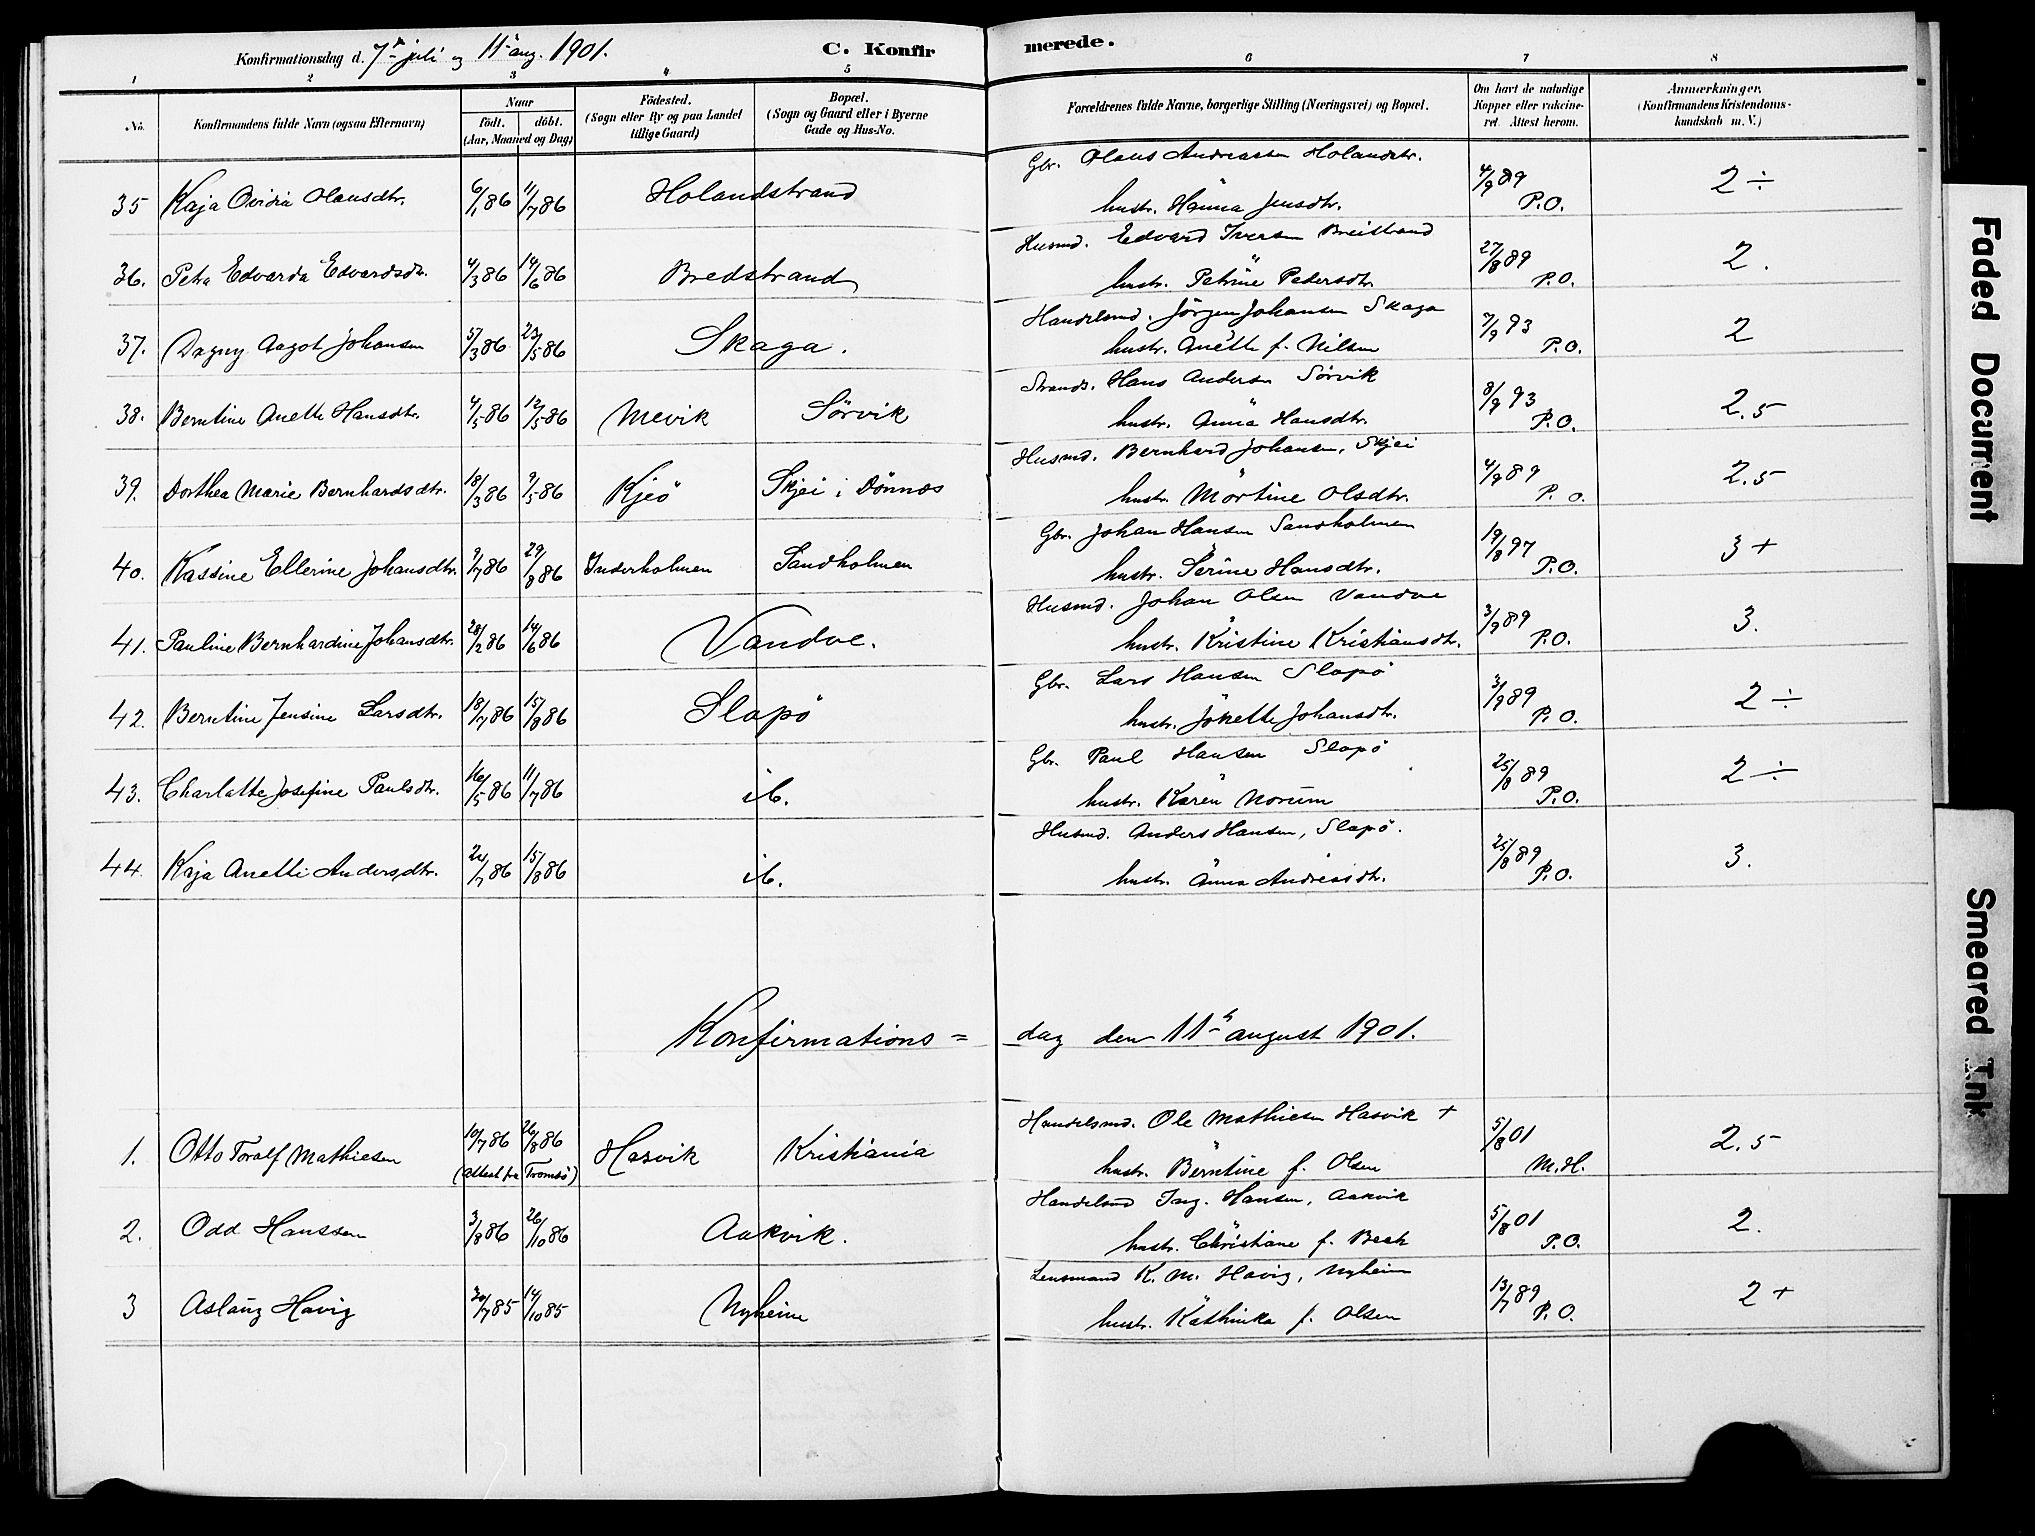 Konfirmationsdag d. 7de juli og 11 aug. 1901. C. Konfirmerede.
1 2 3 4 5 6 7 8
No. Konfirmandens fulde Navn (ogsaa Efternavn) Naar födt. döbt. (Aar, Maaned og Dag) Födested. (Sogn eller By og paa Landet tillige Gaard) Bopæl. (Sogn og Gaard eller i Byerne Gade og Hus-No. Forældrenes fulde Navne, borgerlige Stilling (Næringsvei) og Bopæl. Om havt de naturlige Kopper eller vakcineret. Attest herom. Anmærkninger. (Konfirmandens Kristendomskundskab m. V.)
Gbr. Olaus Andreassen Holandstr.
35 Kaja Ovidia Olausdtr. 6/1 86 11/7 86 Holandstrand hustr. Hanna Jensdtr. 4/9 89 P.O. 2 ÷
Husmd. Edvard Iversen Breistrand
36. Petra Edvarda Edvardsdtr. 4/3 86 14/6 86 Bredstrand hustr. Petrine Pedersdtr. 27/8 89 P.O. 2.
Handelsmd. Jörgen Johansen Skaga
37. Dagny Aagot Johansen 5/3 86 23/5 86 Skaga. hustr. Anette f. Nilsen 7/9 93 P.O. 2
Strands. Hans Andersen Sörvik
38. Berntine Anette Hansdtr. 4/5 86 12/5 86 Mevik Sörvik hustr. Anna Hansdtr. 8/9 93 P.O. 2.5
Husmd. Bernhard Johansen, Skjei
39. Dorthea Marie Bernhardsdtr. 18/3 86 9/5 86 Kjeö Skjei i Dönnes hustr. Martine Olsdtr. 4/9 89 P.O. 2.5
Gbr. Johan Hansen Sandholmen
40. Kassine Ellerine Johansdtr. 9/7 86 29/8 86 Inderholmen Sandholmen hustr. Serine Hansdtr. 19/8 97 P.O. 3 +
Husmd. Johan Olsen Vandve
41. Pauline Bernhardine Johansdtr. 28/2 86 14/6 86 Vandve. hustr. Kristine Kristiansdtr. 3/9 89 P.O. 3.
Gbr. Lars Hansen Slapö
42. Berntine Jensine Larsdtr. 18/7 86 15/8 86 Slapö hustr. Jonette Johansdtr. 3/9 89 P.O. 2 ÷
Gbr. Paul Hansen Slapö
43. Charlatte Josefine Paulsdtr. 16/5 86 11/7 86 ib. hustr. Karen Norum 25/8 89 P.O. 2 ÷
Husmd. Anders Hansen, Slapö.
44. Kaja Anette Andersdtr. 24/7 86 15/8 86 ib. hustr. Anna Andreasdtr. 25/8 89 P.O. 3.
Konfirmations= dag den 11te august 1901.
Handelsmd. Ole Mathiesen Hasvik +
1. Otto Toralf Mathiesen 10/7 86 26/8 86 (attest fra Tromsö) Hasvik Kristiania hustr. Berntine f. Olsen 5/8 01 M.H. 2.5
Handelsmd Ing. Hansen, Aakvik
2. Odd Hanssen 3/8 86 26/10 86 Aakvik. hustr. Christiane f. Beck 5/8 01 P.O. 2.
Lensmand K. M. Havig, Nyheim
3 Aslaug Havig 30/7 85 14/10 85 Nyheim hustr. Kathinka f. Olsen 13/7 89 P.O. 2 +
Faded Document
Smeared Ink